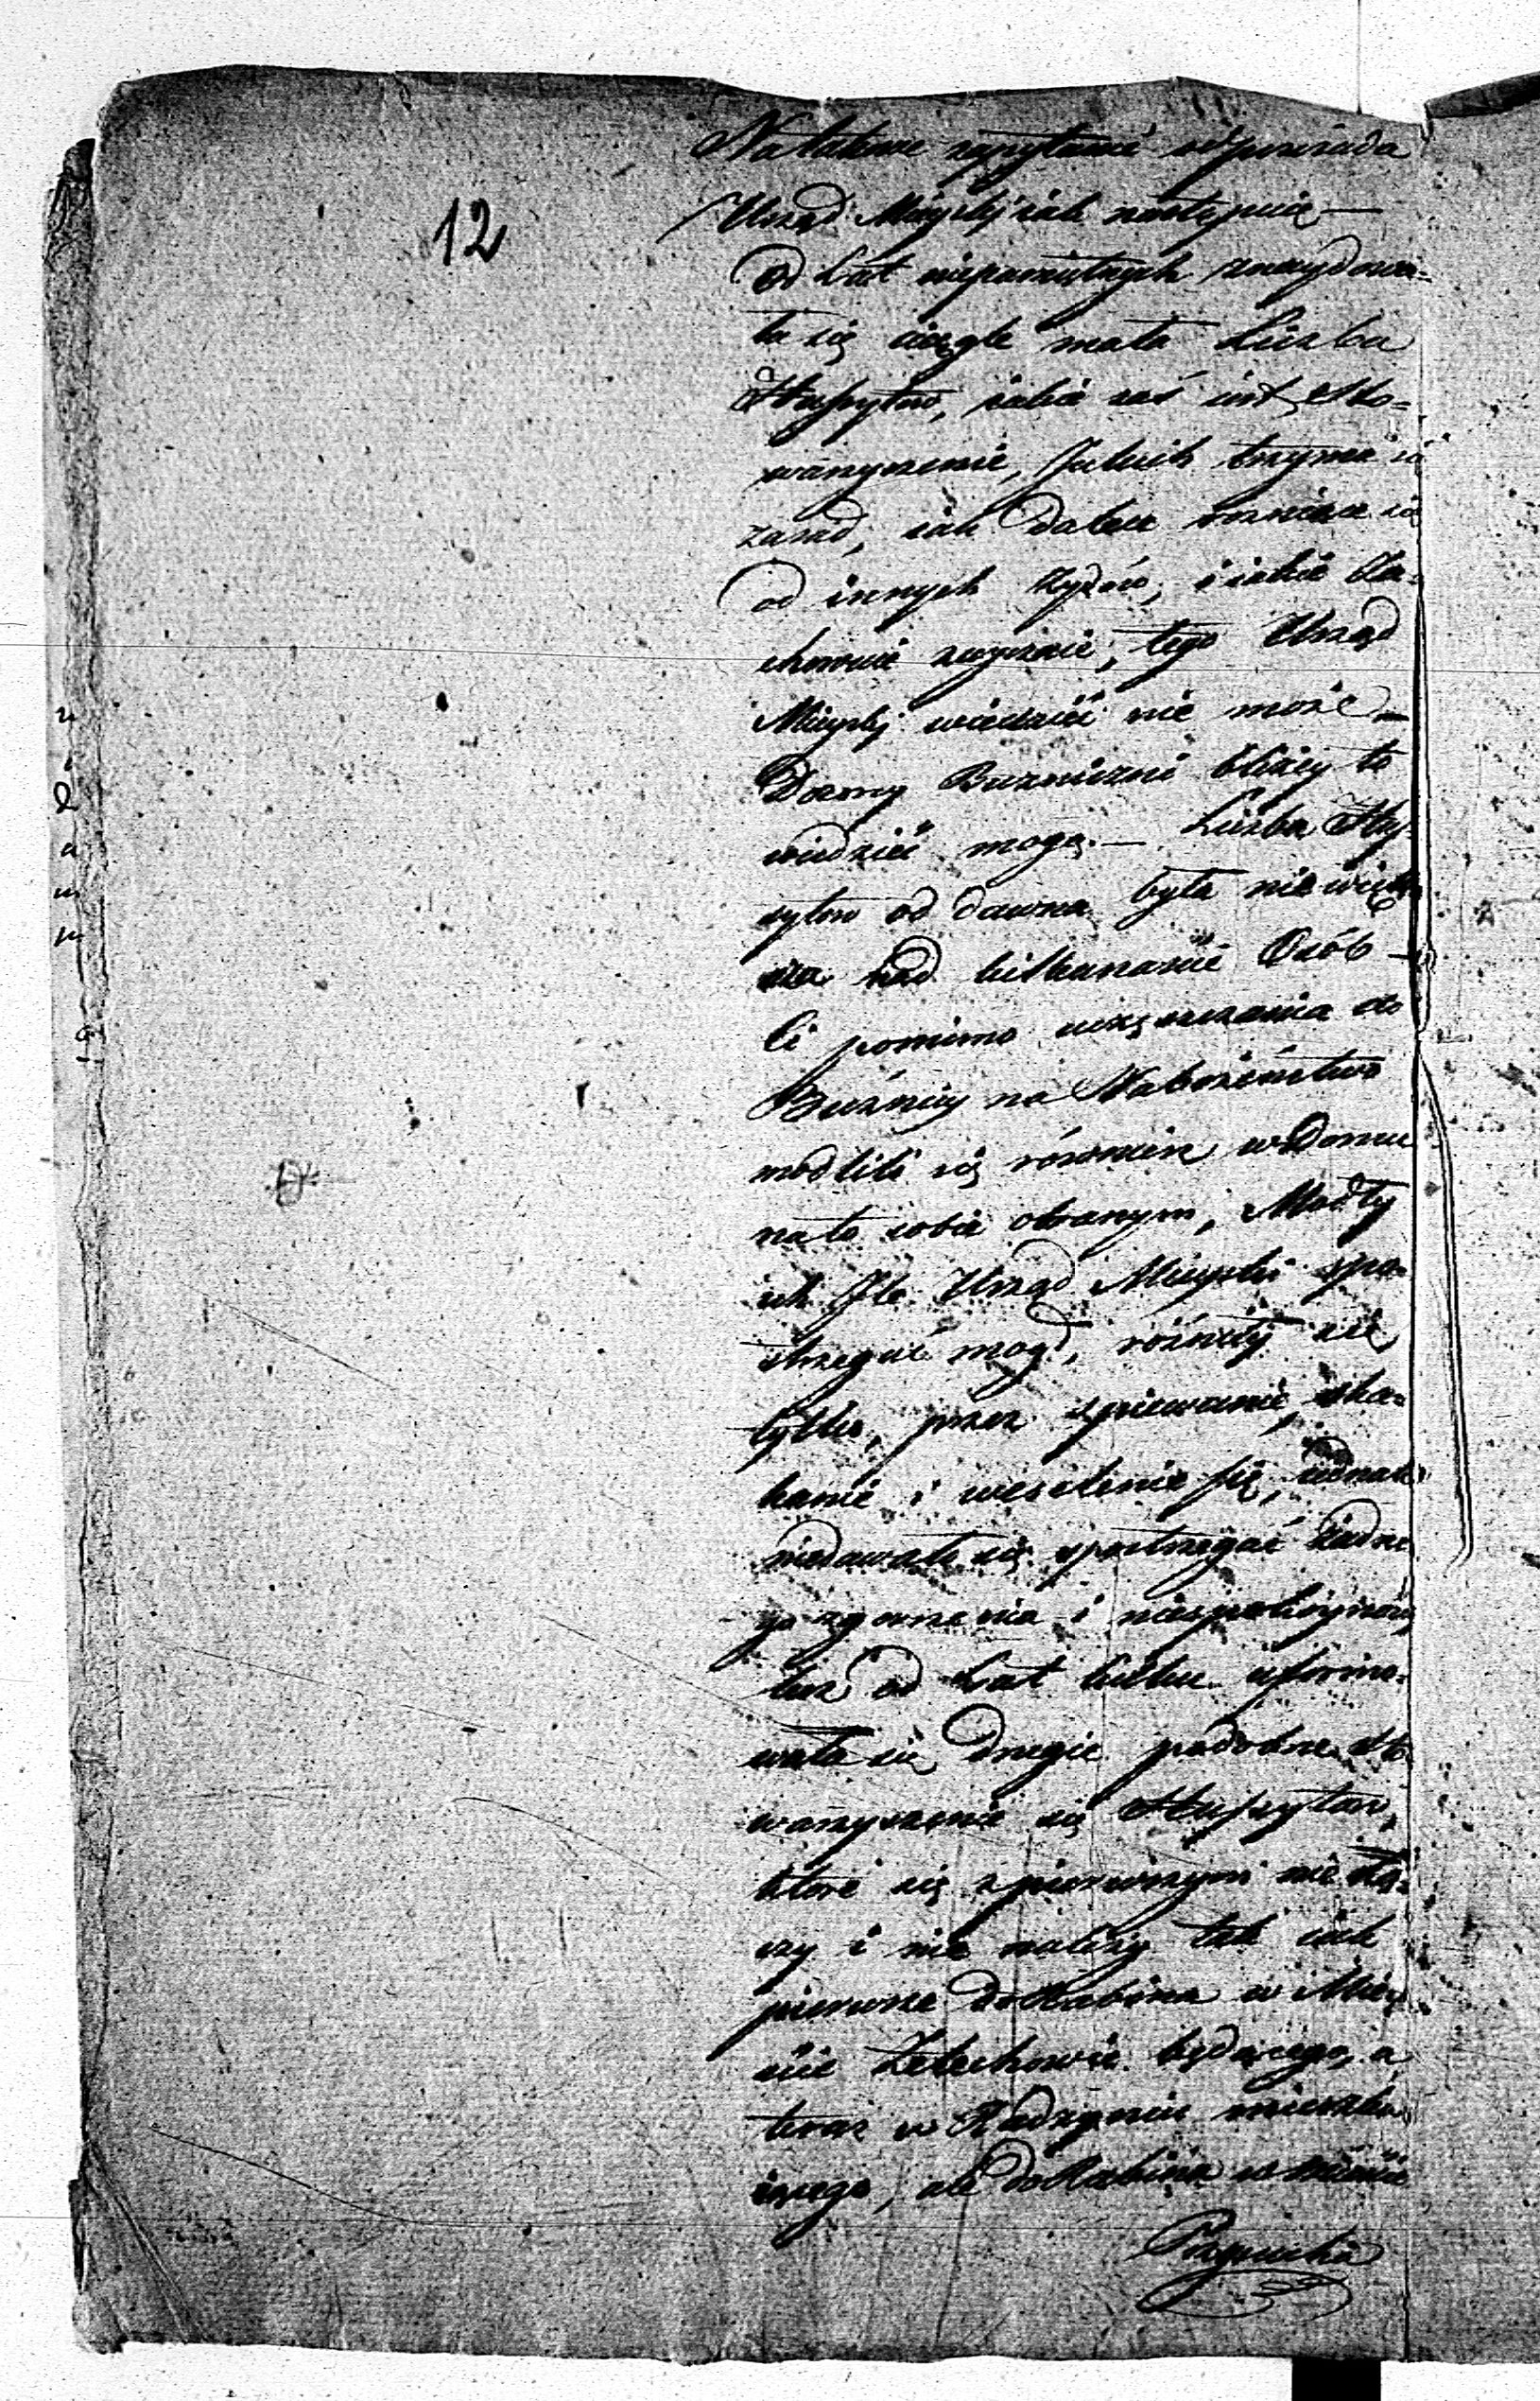 12
Na takowe zapytanié odpowiada
Urząd Mieyski iak następuie —
Od Lat niepamiętnych znaydowa-
ła się ciągle mała Liczba
Hussytow, iakie zaś iest Sto-
warzyszenie, Jakich trzyma się
zasad, iak dalece rożniące się
od innych Żydów, i iakie Za-
chowuié zwyczaie, tego Urząd
Mieyski wiedzieć nie może —
Dozory Bużniczné bliżéy to
wiedzieć mogą — Liczba Hus-
sytow od dawna była nie więk-
sza nad kilkanaście Osób —
Ci pomimo uczęszczania do
Bużnicy na Nabożeństwo
modlili się rówuież w Domu
na to sobie obranym, Modły
ich Ile Urząd Mieyski spo-
strzegać mogł, rożniły sié
tylko, przez spiewanié, ska-
kanie i weselenie się, iednak
niedawało się spostrzegać żadne-
go zgorszenia i niespokoyności
lecz od Lat kilku uformo-
wało się drugie podobne Sto-
warzyszenie się Hussytow,
które się z pierwszym nie łą-
czy i nie należy tak iak
pierwsze do Rabina w Mie-
ście Żelechowie będącego, a
teraz w Radzyniu mieszka-
iącego, ale do Rabina w mieście
Przysucha